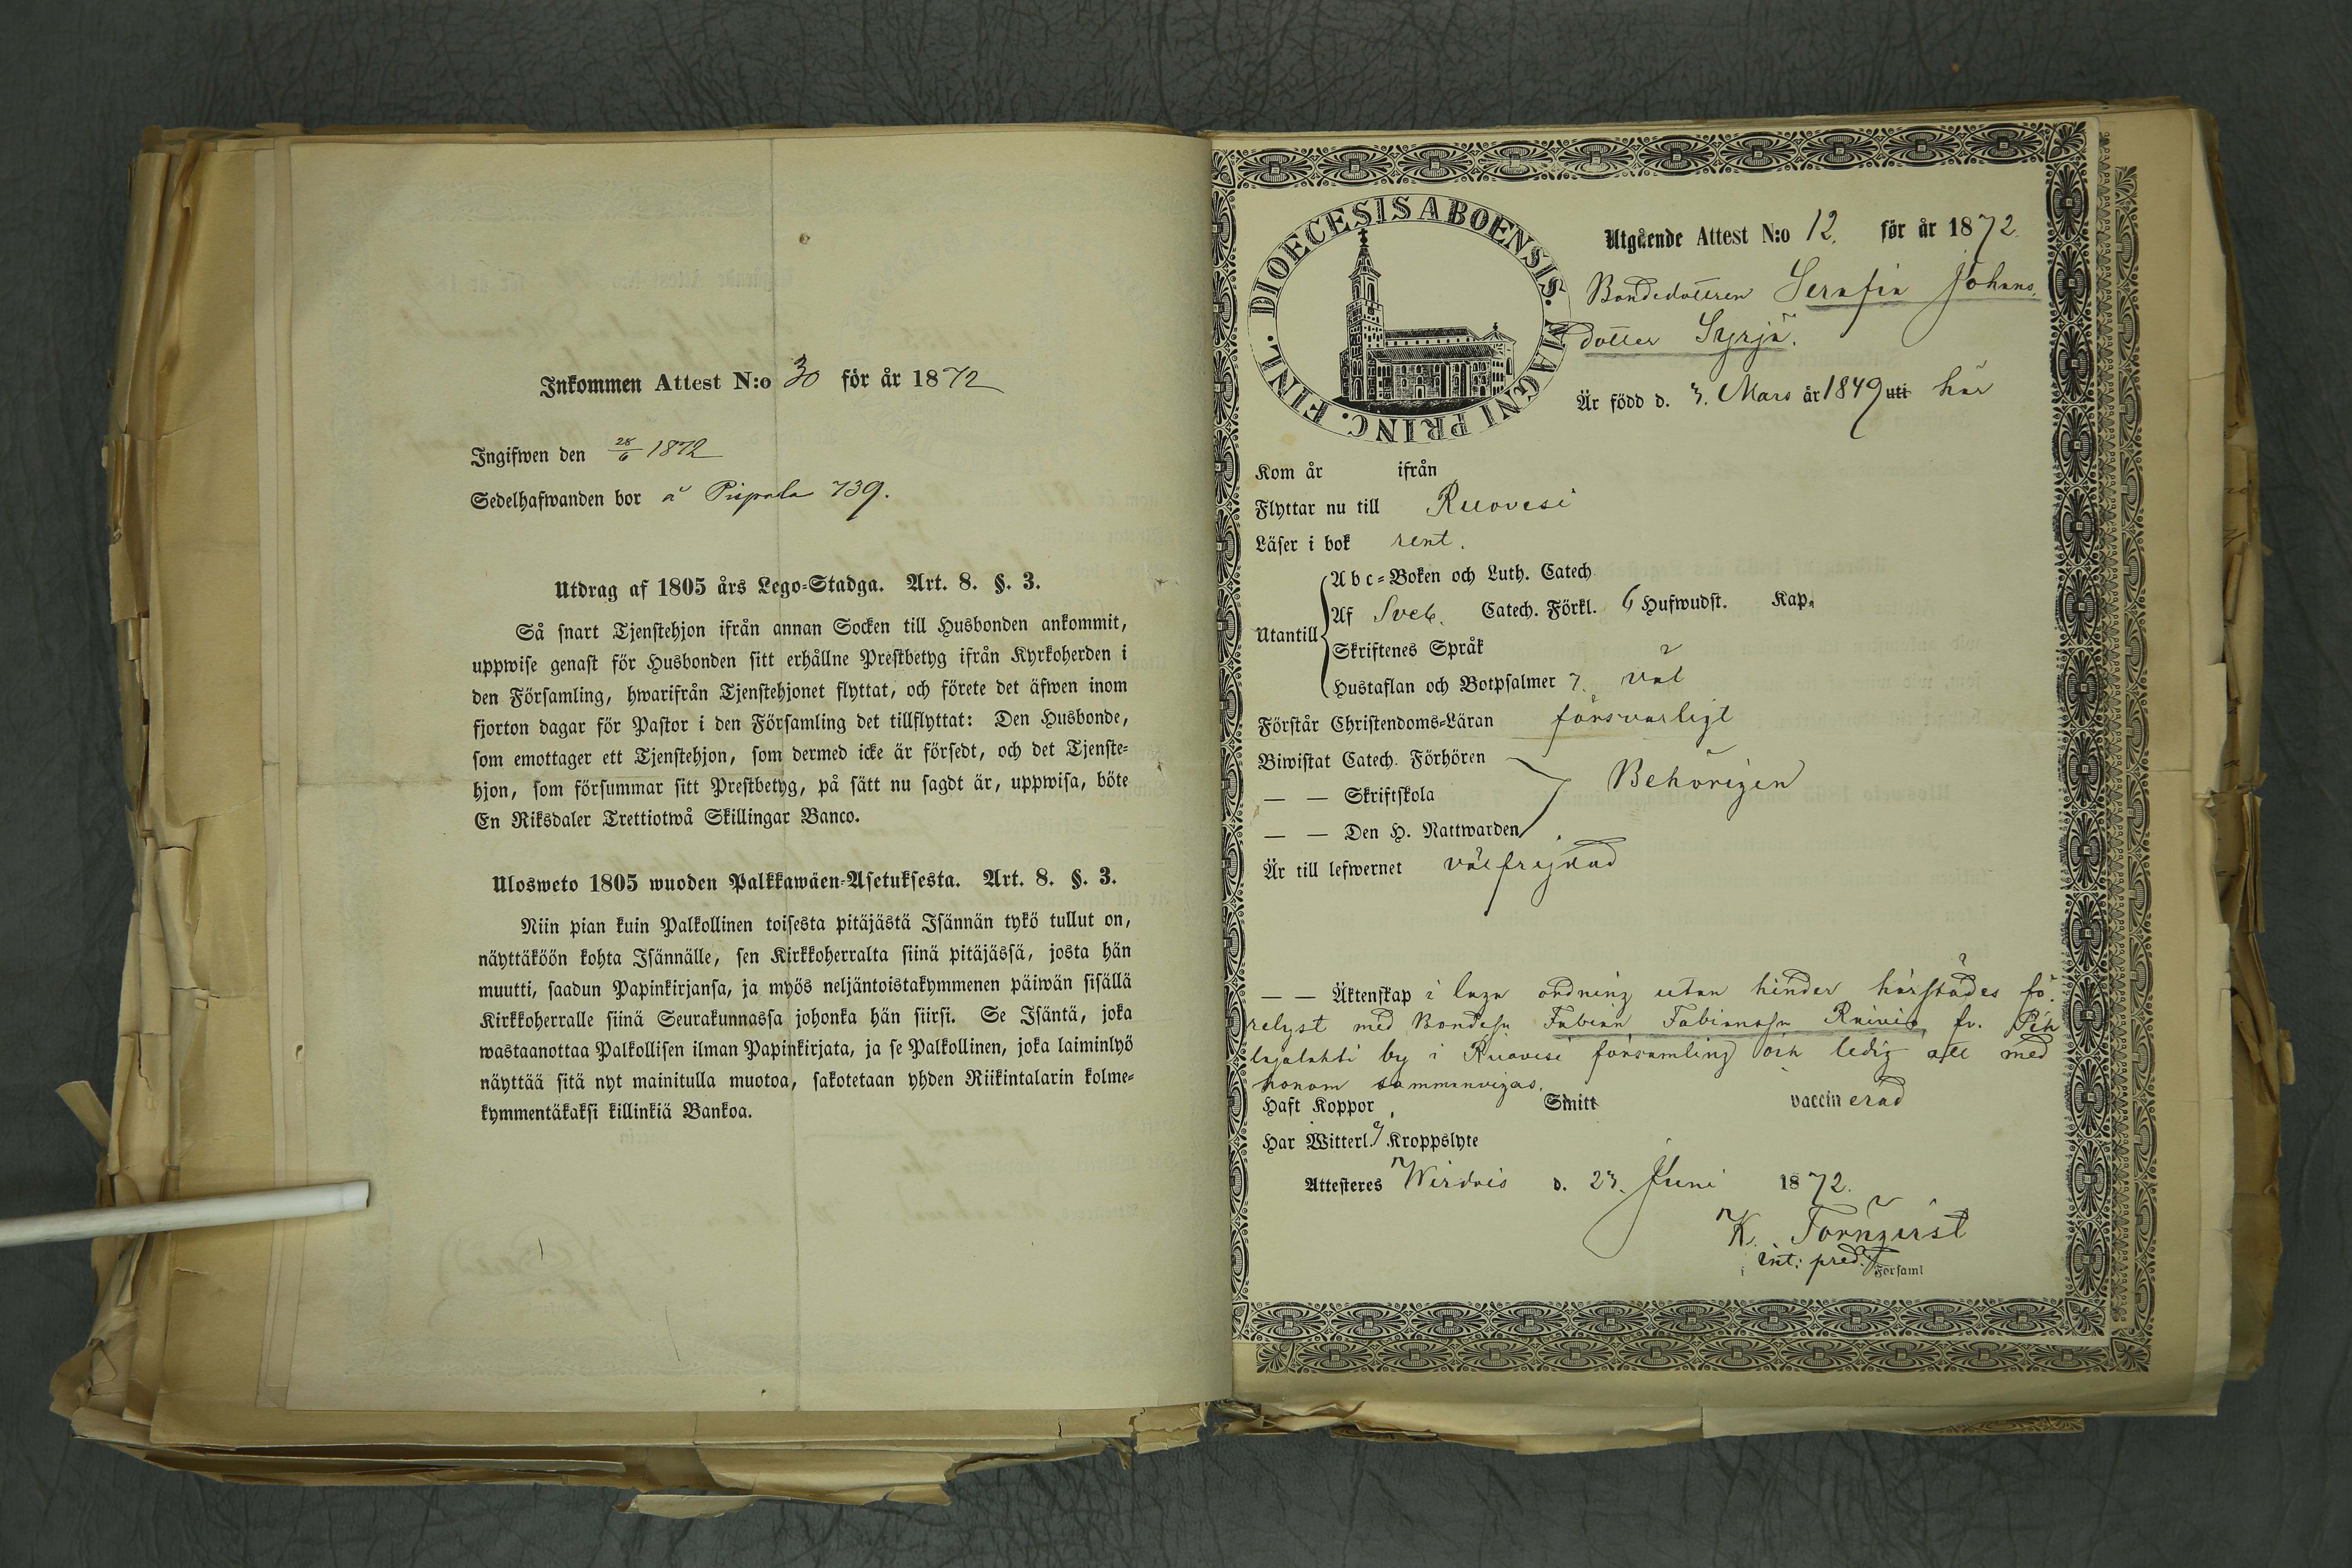 Inkommen Attest N:o 30 för år 1872
Ingifwen den 28/6 1872
Sedelhafwanden bor å Pispala 739.
Utdrag af 1805 års Lego-Stadga. Art. 8. §. 3.
Så snart Tjenstehjon ifrån annan Socken till Husbonden ankommit,
uppwise genast för Husbonden sitt erhållne Prestbetyg ifrån Kyrkoherden i
den Församling, hwarifrån Tjenstehjonet flyttat, och förete det äfwen inom
fjorton dagar för Pastor i den Församling det tillflyttat: Den Husbonde,
som emottager ett Tjenstehjon, som dermed icke är försedt, och det Tjenste-
hjon, som försummar sitt Prestbetyg, på sätt nu sagdt är, uppwisa, böte
En Riksdaler Trettiotwå Skillingar Banco.
Ulosweto 1805 wuoden Palkkawäen-Asetuksesta. Art. 8. §. 3.
Niin pian kuin Palkollinen toisesta pitäjästä Isännän tykö tullut on,
näyttäköön kohta Isännälle, sen Kirkkoherralta siinä pitäjässä, josta hän
muutti, saadun Papinkirjansa, ja myös neljäntoistakymmenen päiwän sisällä
Kirkkoherralle siinä Seurakunnassa johonka hän siirsi. Se Isäntä, joka
wastaanottaa Palkollisen ilman Papinkirjata, ja se Palkollinen, joka laiminlyö
näyttää sitä nyt mainitulla muotoa, sakotetaan yhden Riikintalarin kolme-
kymmentäkaksi killinkiä Bankoa.
DIOECESIS ABOENSIS. MAGNI PRINC. FINL.
Utgående Attest N:o 12. för år 1872.
Bondedottren Serafia Johans
dotter Syrjä.
Är född d. 3. Mars år 1849 uti här
Kom år ifrån
Flyttar nu till Ruovesi
Läser i bok rent.
Utantill
Abc-Boken och Luth. Catech.
Af Sveb. Catech. Förkl. 6 Hufwudst. Kap.
Skriftenes Språk
Hustaflan och Botpsalmer 7. väl
Förstår Christendoms-Läran försvarligt
Biwistat Catech. Förhören
— — Skriftskola Behörigen
— — Den H. Nattwarden
Är till lefwernet välfrejdad
— — Äktenskap i laga ordning utan hinder härstädes fö-
relyst med Bondesn Fabian Fabiansn Raivio fr. Pih
lajalahti by i Ruovesi församling och ledig att med
honom sammanvigas.
Haft Koppor, Smitt vaccinerad
Har Witterl. ej Kroppslyte
Attesteres Wirdois d. 23. Juni 1872.
K. Törnqvist
i int: pred. Församl